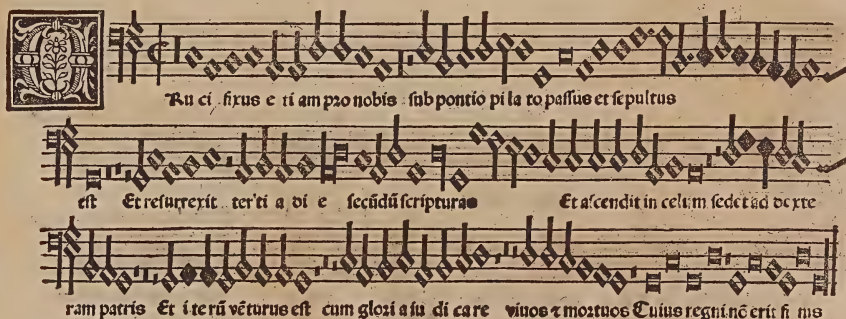 CRu ci fixus e ti am pro nobis sub pontio pi la to passus et sepultus
est Et resurrexit ter ti a di e secūdū scripturas Et ascendit in celum sedet ad dexte
ram patris Et i te rū vēturus est cum glori a iu di care vivos ⁊ mortuos Cuius regni nō erit fi nis